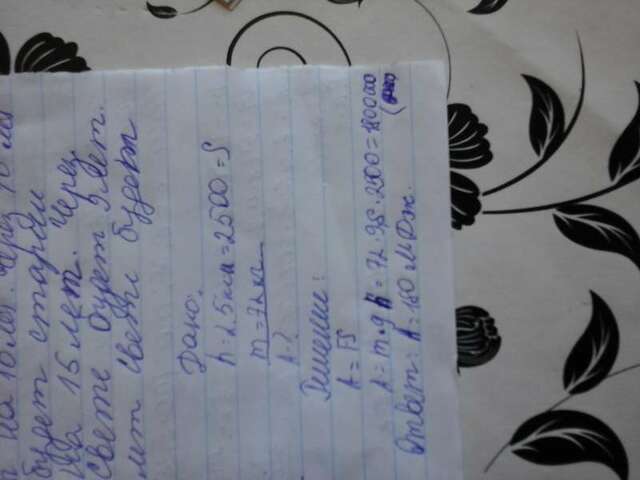 на 10 лет. Через 10 лет
будет старше
на 15 лет. Через
Свете будет 5 лет.
лет Свете будет
Дано:
h = 2.5 км = 2500 = S
m = 72 кг
A - ?
Решение:
A = FS
A = m·g·h = 72 ·
Ответ: A = 180 МДж.